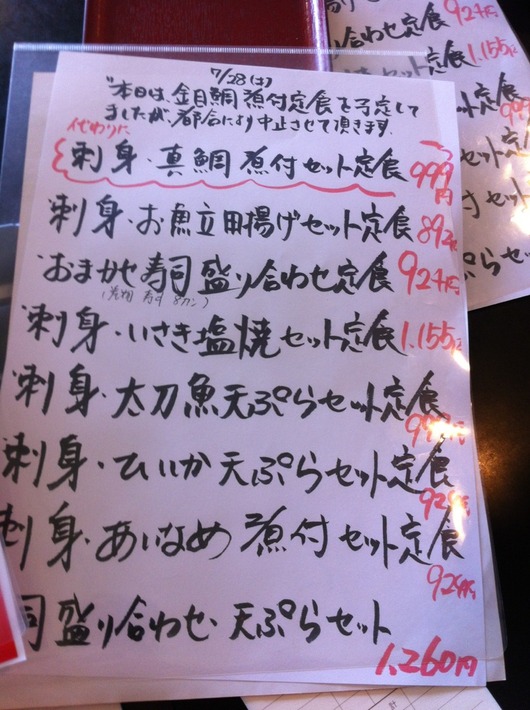 7/28(土)
"本日は、金目鯛煮付定食を予定して
ましたが、都合により中止させて頂きます
代わりに
刺身・真鯛煮付セット定食 999円
刺身・お魚立田揚げセット定食 892円
おまかせ寿司盛り合わせ定食 924円
刺身・いさき塩焼セット定食 1.155円
刺身・太刀魚天ぷらセット定食
刺身・ひいか天ぷらセット定食
刺身・あいなめ煮付セット定食 924円
司盛り合わせ・天ぷらセット
1,260円
924円
合わせ定食
セット定食 1.155円
定食
セット定食